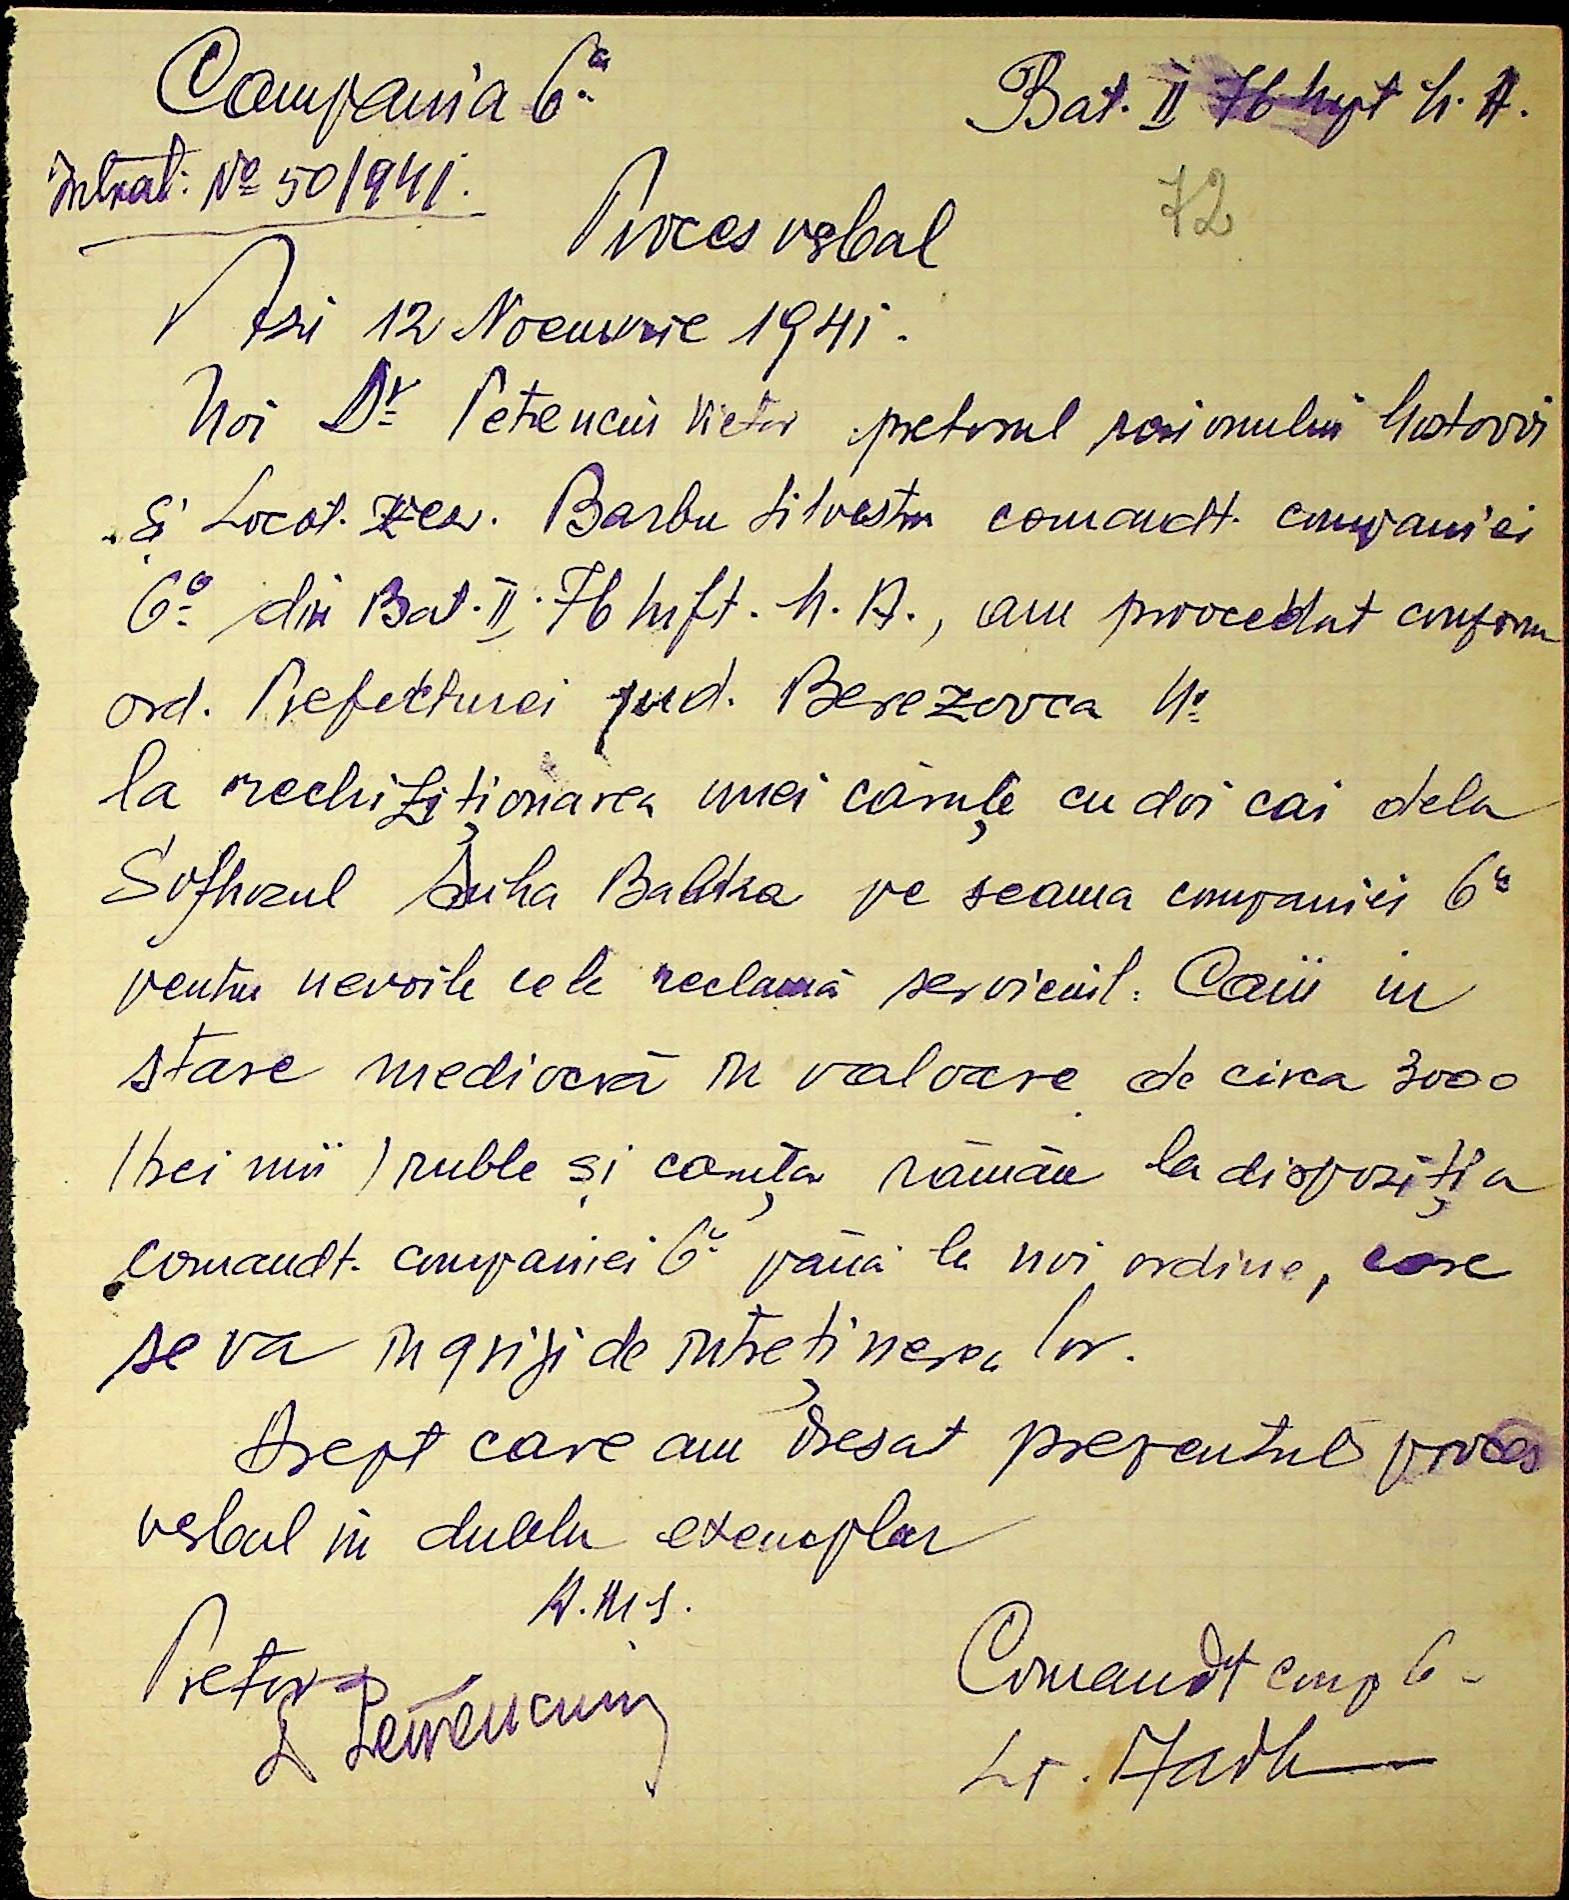 Compania 6a
Bat. II 76 Inft M. A.
Intrat: No 50/941.
72
Proces verbal
Azi 12 Noemvrie 1941.
Noi Dr Petrenciu Victor pretorul raionului Mostovoi
și Locot. rez. Barbu Silvestru comandt. companiei
6a din Bat. II. 76 Inft. M. A., am procedat conform
ord. Prefecturei jud. Berezovca No
la rechiziționarea unei căruțe cu doi cai dela
Sofhozul Suha Baldka pe seama companiei 6a
pentru nevoile cele reclamă serviciul. Caii in
stare mediocră în valoare de circa 3000
(trei mii) ruble și căruța rămân la dispoziția
comandt. companiei 6a până la noi ordine, care
se va îngriji de întreținerea lor.
Drept care am dresat prezentul proces
verbal în dublu exemplar
Pretor
Dr Petrenciu
Comandt comp 6a
Lt.